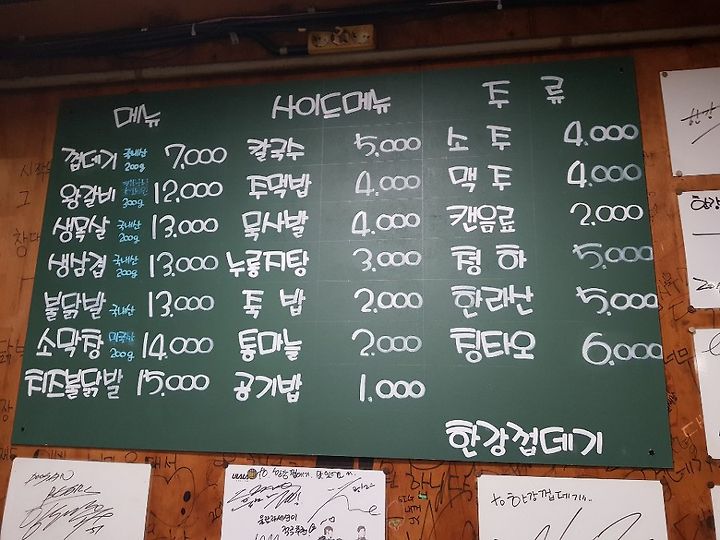 메뉴
껍데기 국내산 200g 7,000
왕갈비 300g 12,000
생목살 국내산 200g 13,000
생삼겹 국내산 200g 13,000
불닭발 국내산 13,000
소막창 미국산 200g 14,000
치즈불닭발 15,000
사이드메뉴
칼국수 5,000
주먹밥 4,000
묵사발 4,000
누룽지탕 3,000
톡밥 2,000
통마늘 2,000
공기밥 1,000
투 류
소 투 4,000
맥 투 4,000
캔음료 2,000
청 하 5,000
한라산 5,000
칭타오 6,000
한강껍데기
to 한강껍데기..